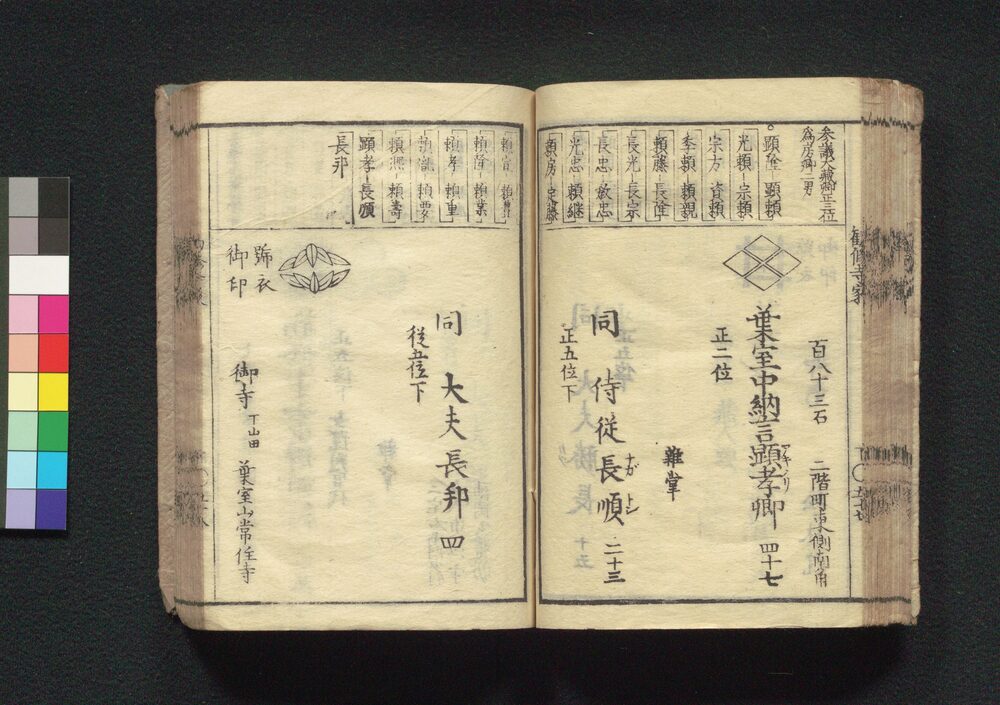 勧修寺家
参議大蔵卿正三位
為房卿二男
顕隆 顕頼
光頼 宗頼
宗方 資頼
季頼 頼親
頼藤 長隆
長光 長宗
長忠 教忠
光忠 頼継
頼房 定藤
百八十三石 二階町東側南角
葉室中納言顕孝卿 四十七
アキノリ
正二位
雑掌
同 侍従長順 二十三
ナガトシ
正五位下
頼宣 頼
頼隆 頼業
頼孝 頼重
頼胤 頼要
頼熙 頼寿
顕孝 長順
長邦
同 大夫長邦 四
従五位下
號衣
御印
御寺 下山田 葉室山常住寺